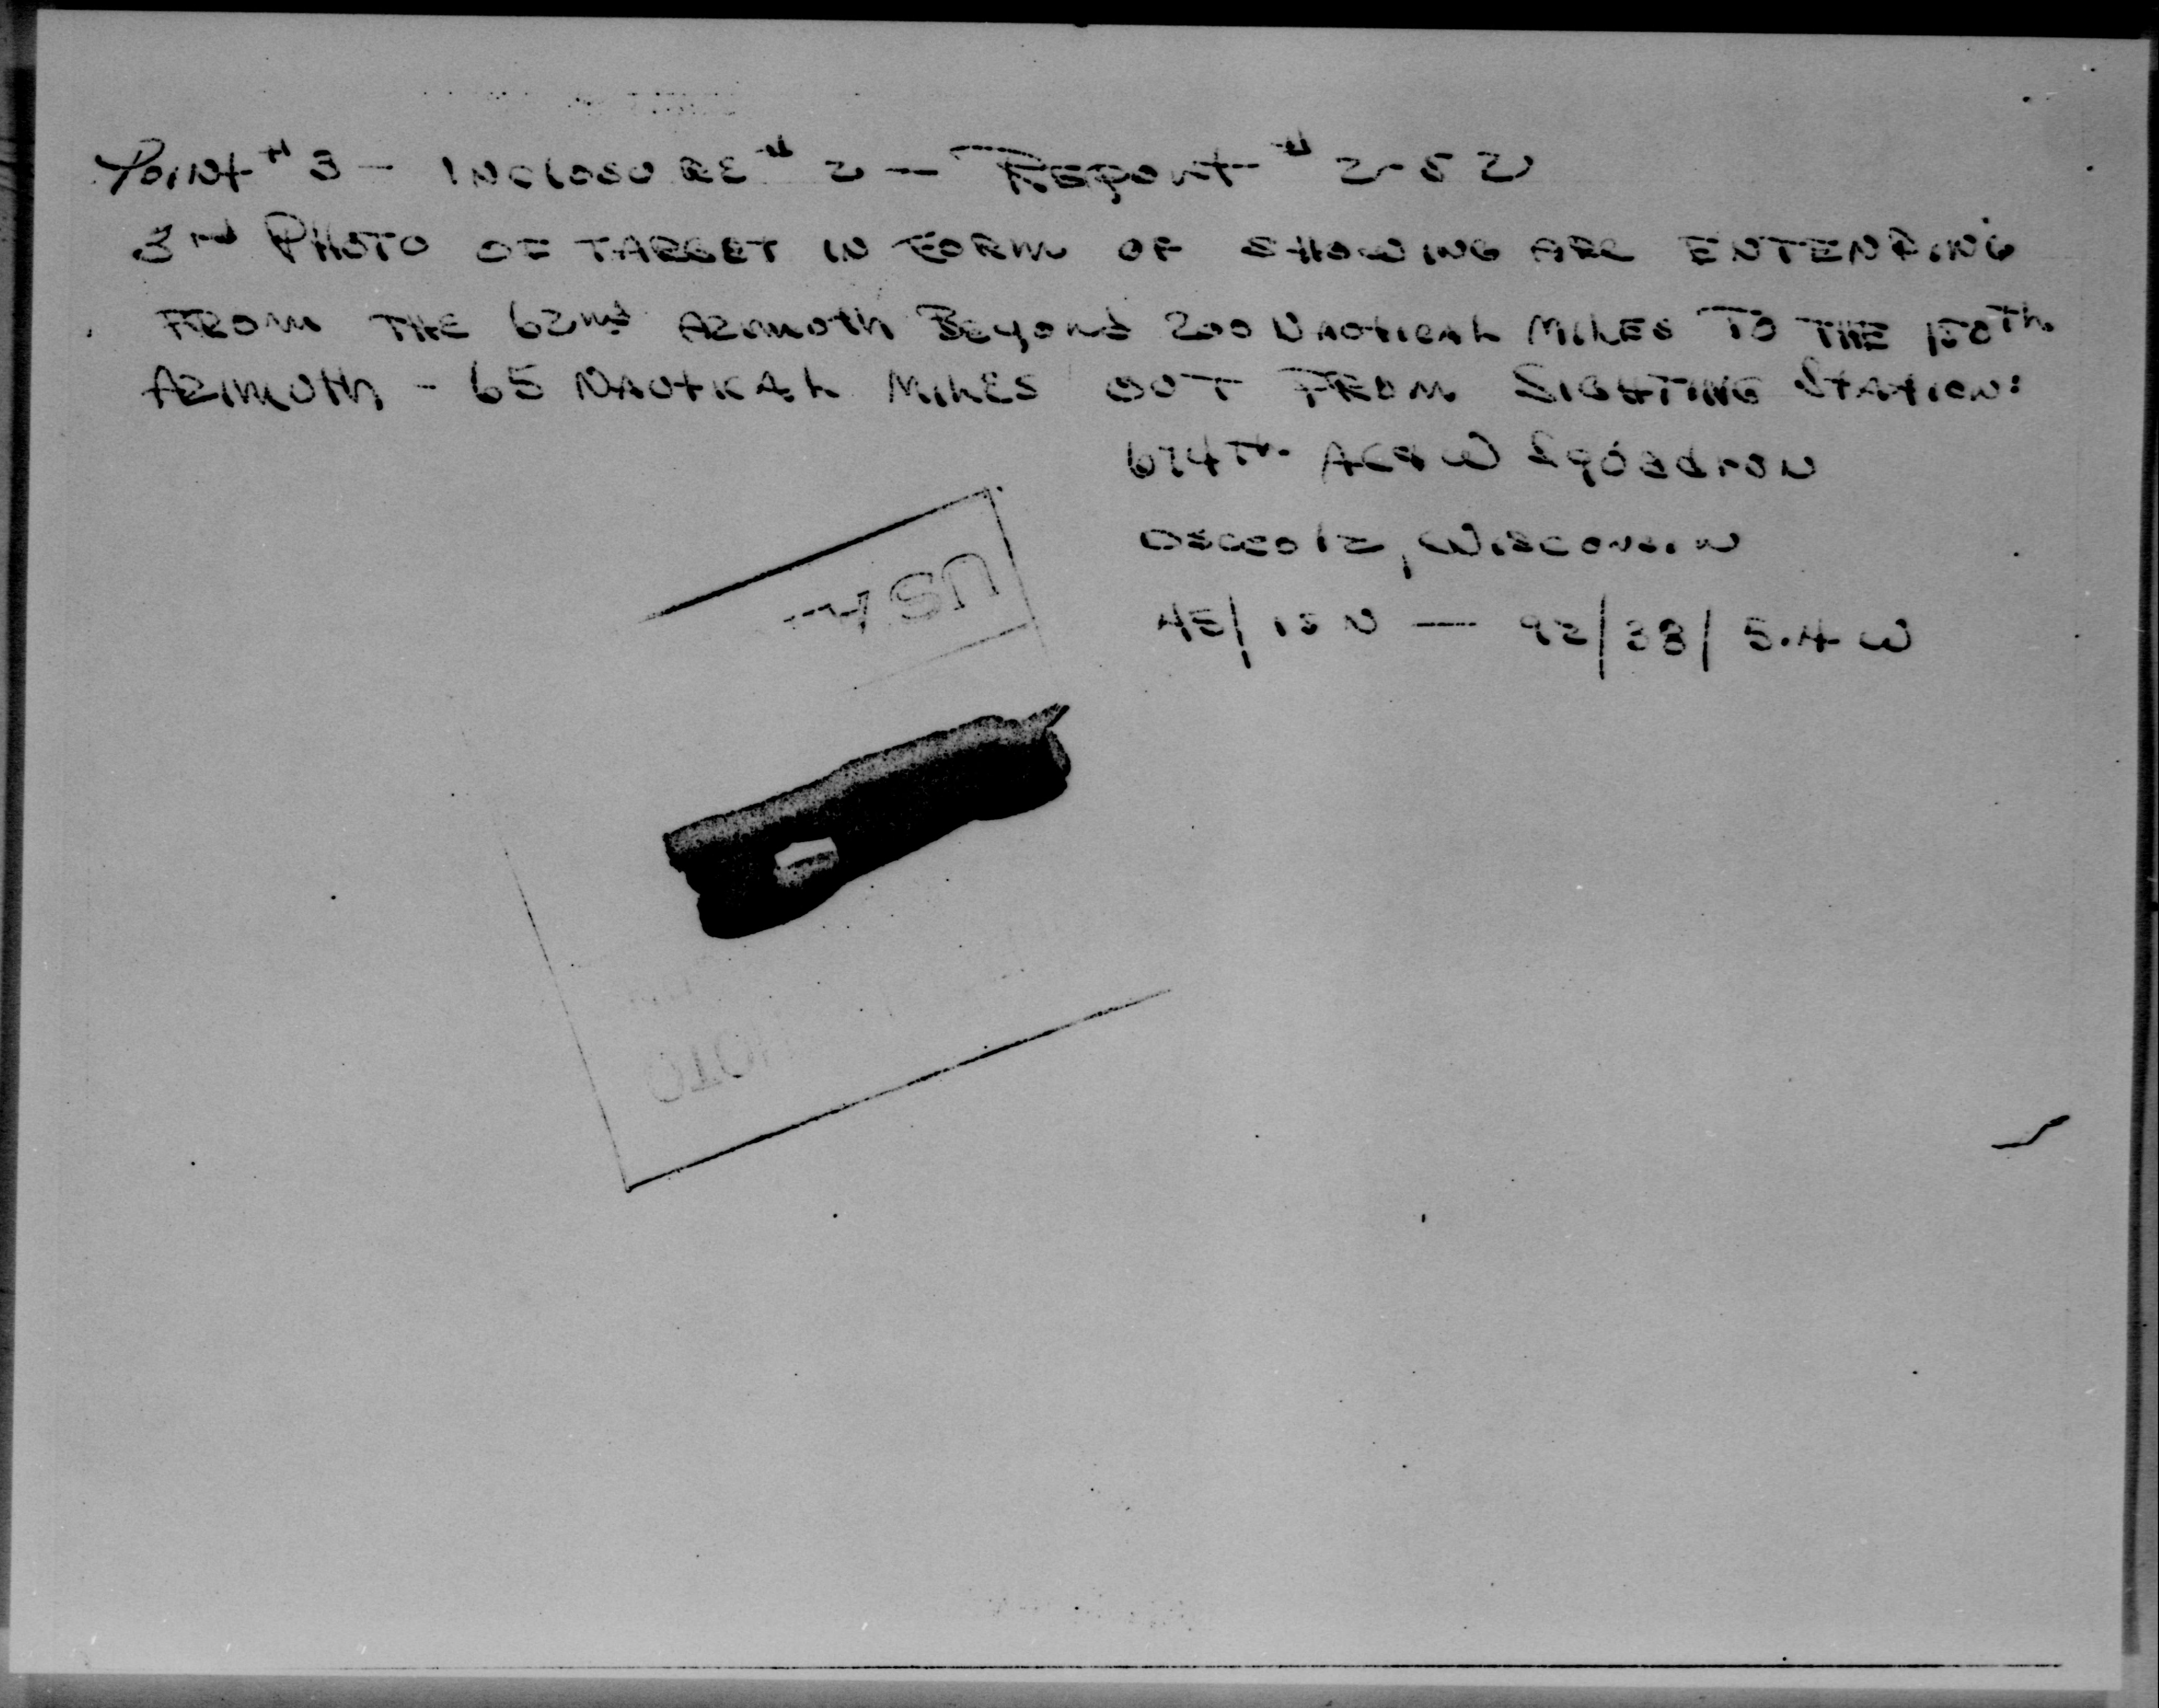 Point # 3 - INCLOSURE # 2 - Report # 2-52
3rd PHOTO OF TARGET IN FORM OF SHOWING ARC ENTENDING
FROM THE 62nd AZIMUTH BEYOND 200 NAUTICAL MILES TO THE 150th
AZIMUTH - 65 NAUTICAL MILES OUT FROM SIGHTING STATION:
674th AC&W Squadron
Osceola, Wisconsin
45/15 N - 92/38/5.4 W
US
PHOTO